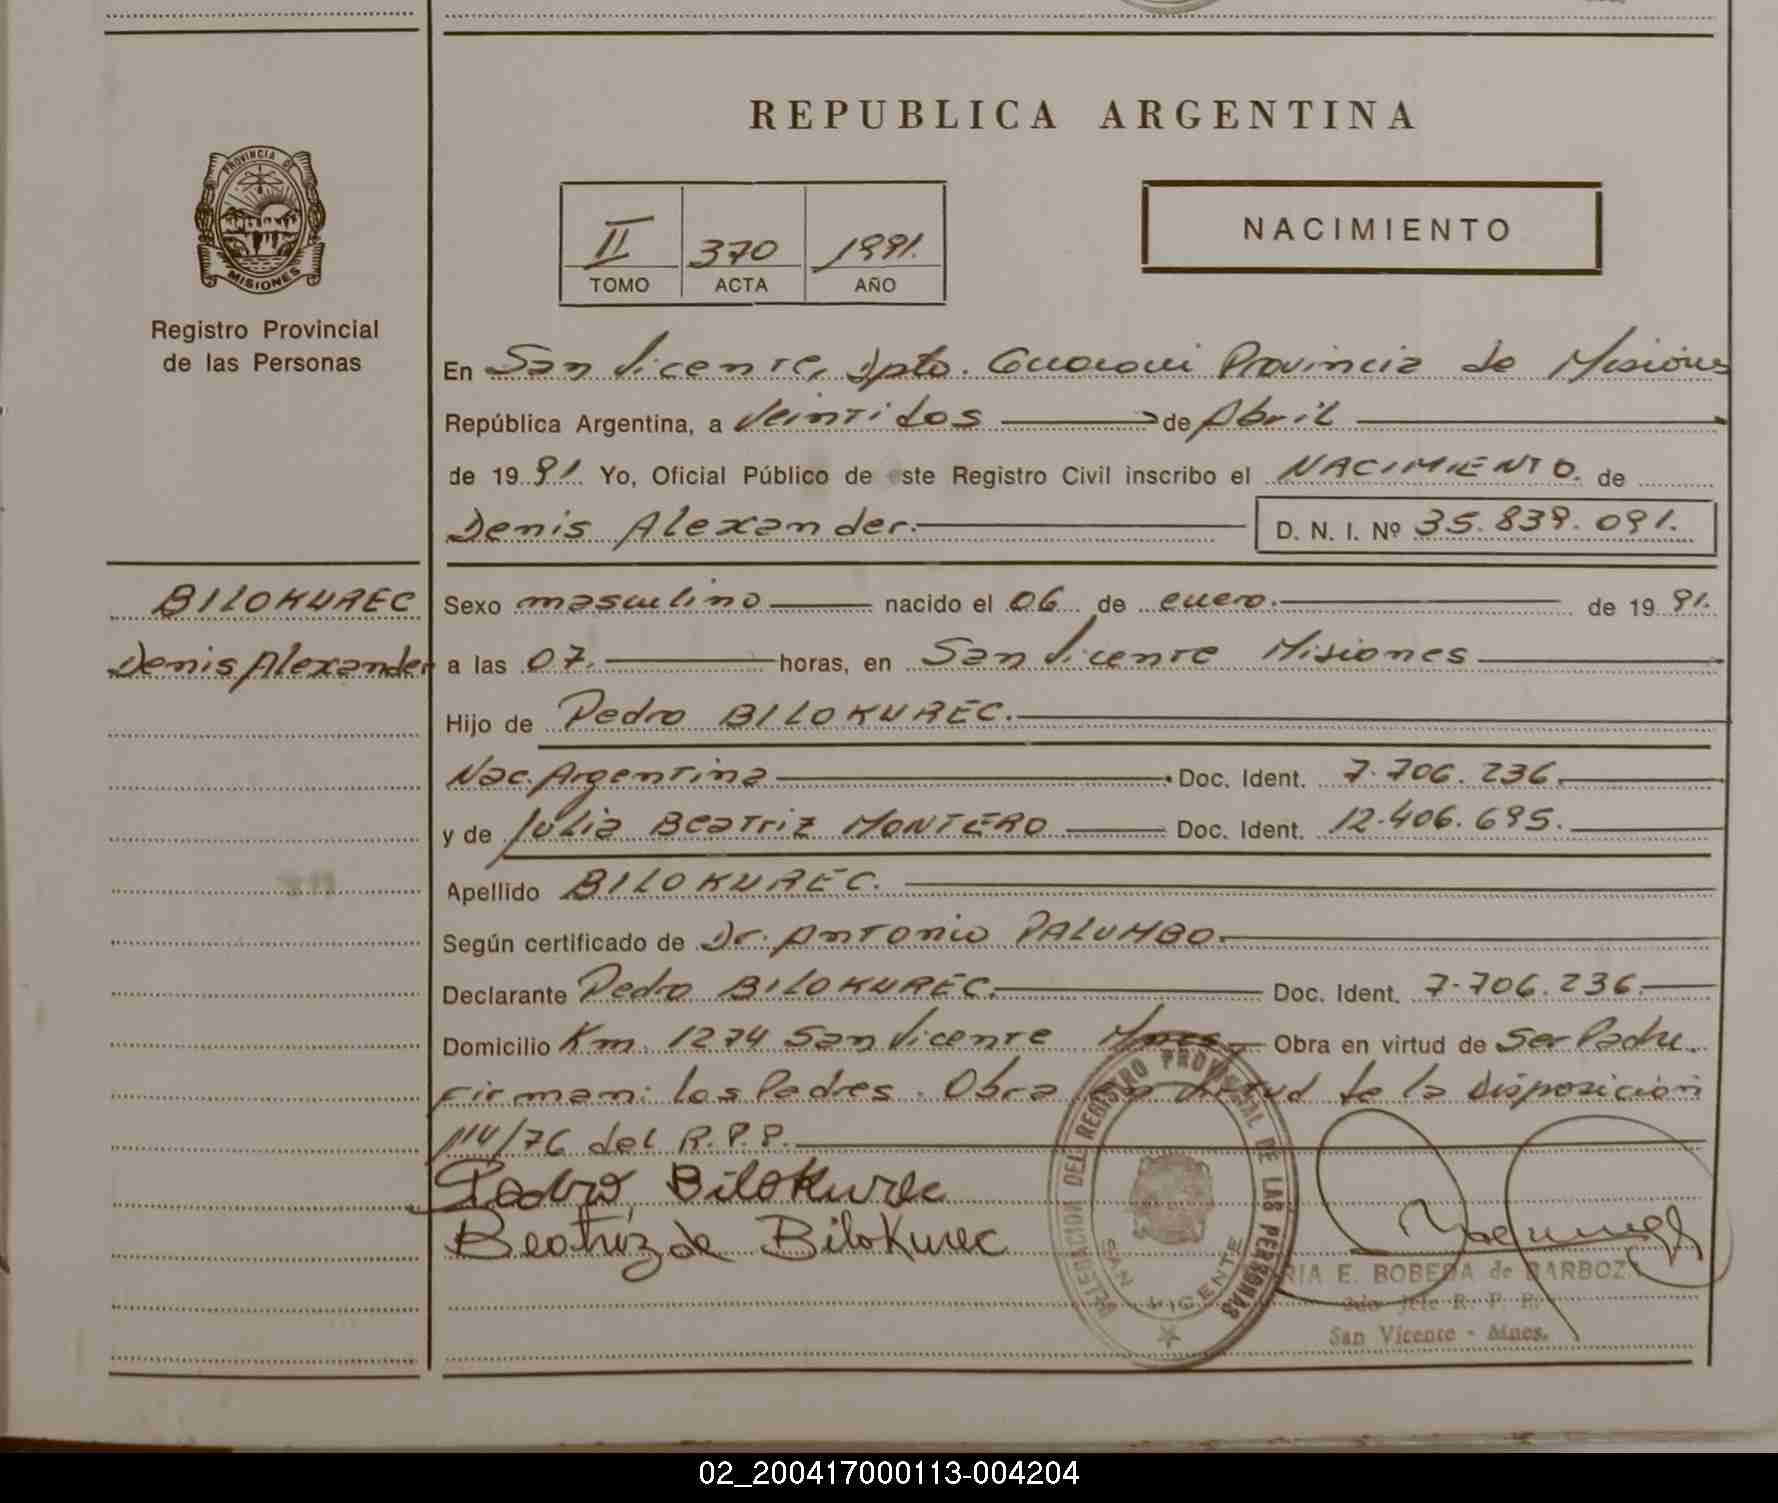 REPUBLICA ARGENTINA
PROVINCIA DE
MISIONES
Registro Provincial
de las Personas
II 370 1991.
TOMO ACTA AÑO
NACIMIENTO
En San Vicente, Dpto. Guarani Provincia de Misiones
República Argentina, a Veintidos de Abril
de 1991. Yo, Oficial Público de este Registro Civil inscribo el NACIMIENTO. de
Denis Alexander. D. N. I. Nº 35.839.091.
BILOKUREC
Denis Alexander
Sexo masculino nacido el 06 de enero. de 1991.
a las 07. horas, en San Vicente Misiones
Hijo de Pedro BILOKUREC.
Nac. Argentina Doc. Ident. 7.706.236.
y de Julia Beatriz MONTERO Doc. Ident. 12.406.695.
Apellido BILOKUREC.
Según certificado de Dr. Antonio PALUMBO.
Declarante Pedro BILOKUREC. Doc. Ident. 7.706.236.
Domicilio Km. 1274 San Vicente Mnes. Obra en virtud de Ser Padre.
Firman: los Padres. Obra en virtud de la Disposicion
/76 del R.P.P.
Pedro Bilokurec
Beatriz de Bilokurec
DELEGACION DEL REGISTRO PROVINCIAL DE LAS PERSONAS
SAN VICENTE
RIA E. BOBEDA de BARBOZA
2do Jefe R. P. P.
San Vicente - Mnes.
02_200417000113-004204